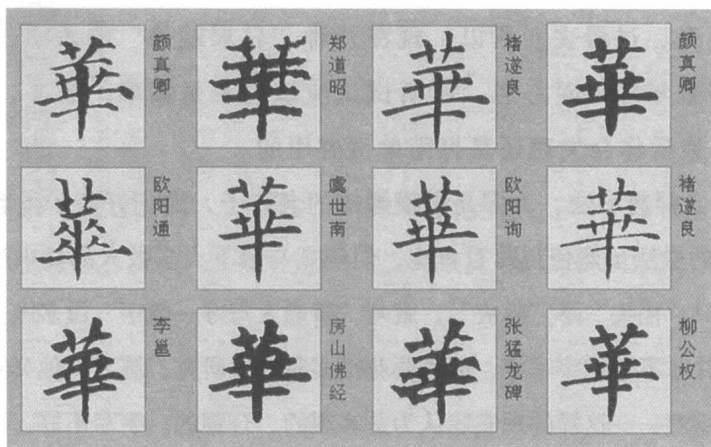 華 颜真卿
華 郑道昭
華 褚遂良
華 颜真卿
華 欧阳通
華 虞世南
華 欧阳询
華 褚遂良
華 李邕
華 房山佛经
華 张猛龙碑
華 柳公权